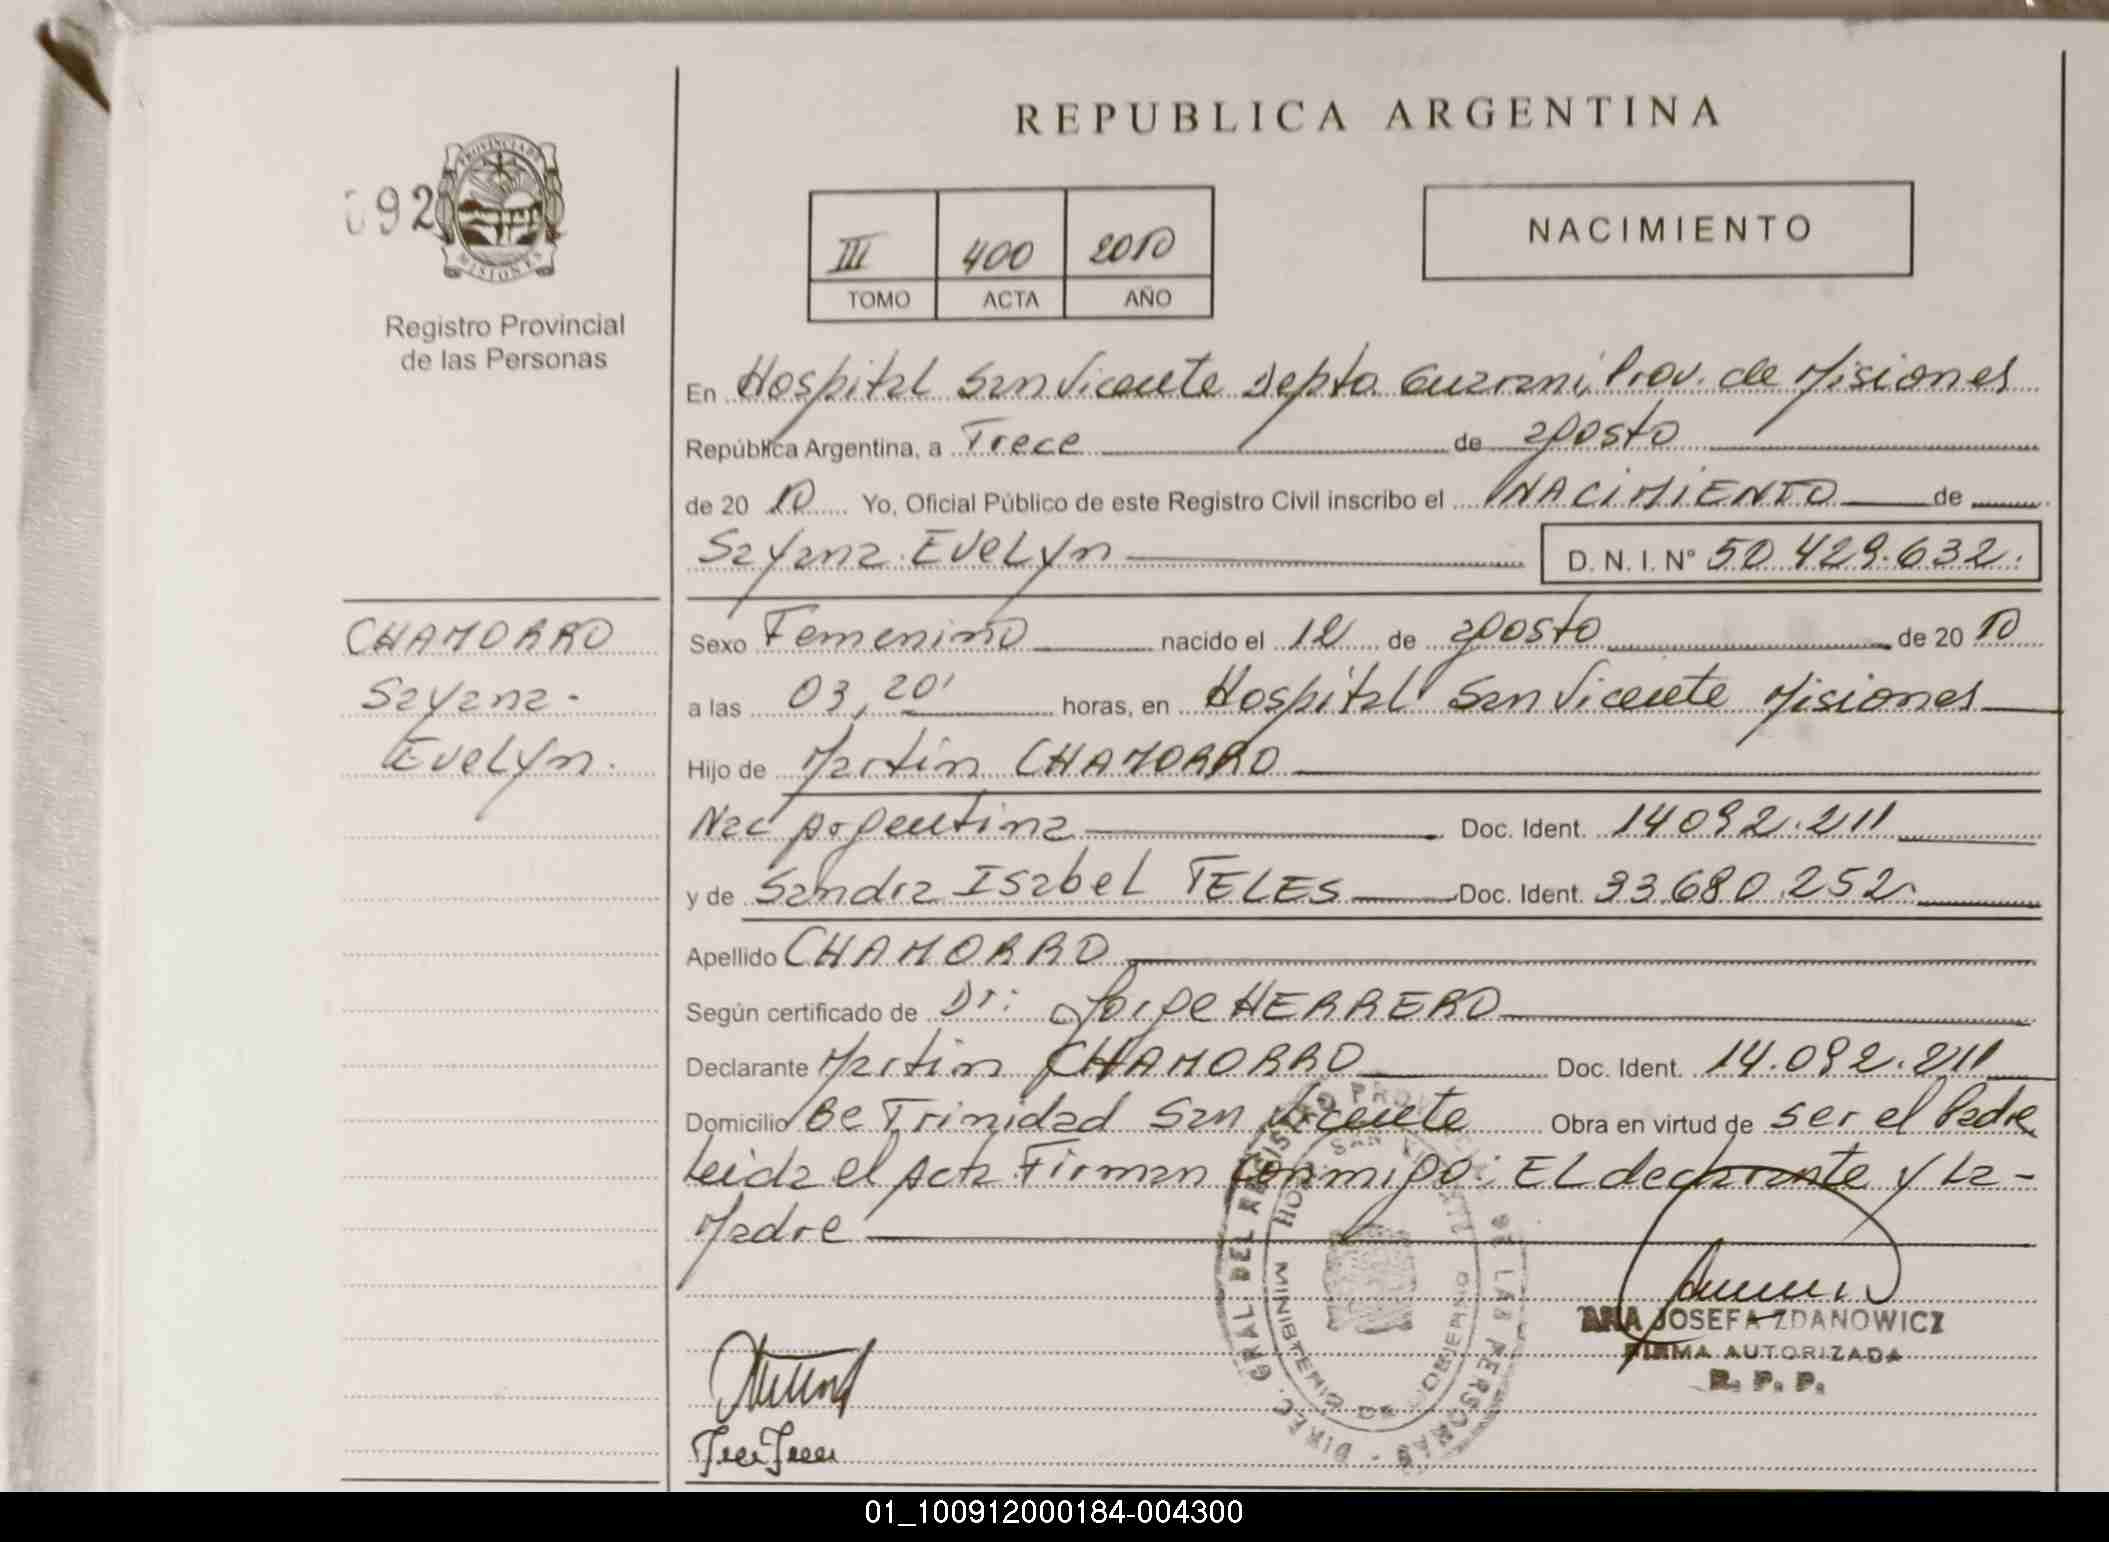 REPUBLICA ARGENTINA
92
PROVINCIA DE
MISIONES
Registro Provincial
de las Personas
III 400 2010
TOMO ACTA AÑO
NACIMIENTO
En Hospital San Vicente Depto. Guarani, Prov. de Misiones
República Argentina, a Trece de agosto
de 20 10 Yo, Oficial Público de este Registro Civil inscribo el NACIMIENTO de
Sayana Evelyn D. N. I. Nº 50.429.632.
CHAMORRO
Sayana-
Evelyn.
Sexo Femenino nacido el 12 de agosto de 20 10
a las 03,20' horas, en Hospital San Vicente Misiones
Hijo de Martin CHAMORRO
Nac Argentina Doc. Ident. 14092.211
y de Sandra Isabel TELES Doc. Ident. 33.680.252.
Apellido CHAMORRO
Según certificado de Dr: Jorge HERRERO
Declarante Martin CHAMORRO Doc. Ident. 14.092.211
Domicilio Bº Trinidad San Vicente Obra en virtud de ser el Padre
Leida el Acta Firman Conmigo: El declarante y La-
Madre
DIREC. GRAL. DEL REGISTRO PROV. DE LAS PERSONAS
HOSP. SAN VICENTE
MINISTERIO DE GOBIERNO
ANA JOSEFA ZDANOWICZ
FIRMA AUTORIZADA
R. P. P.
01_100912000184-004300